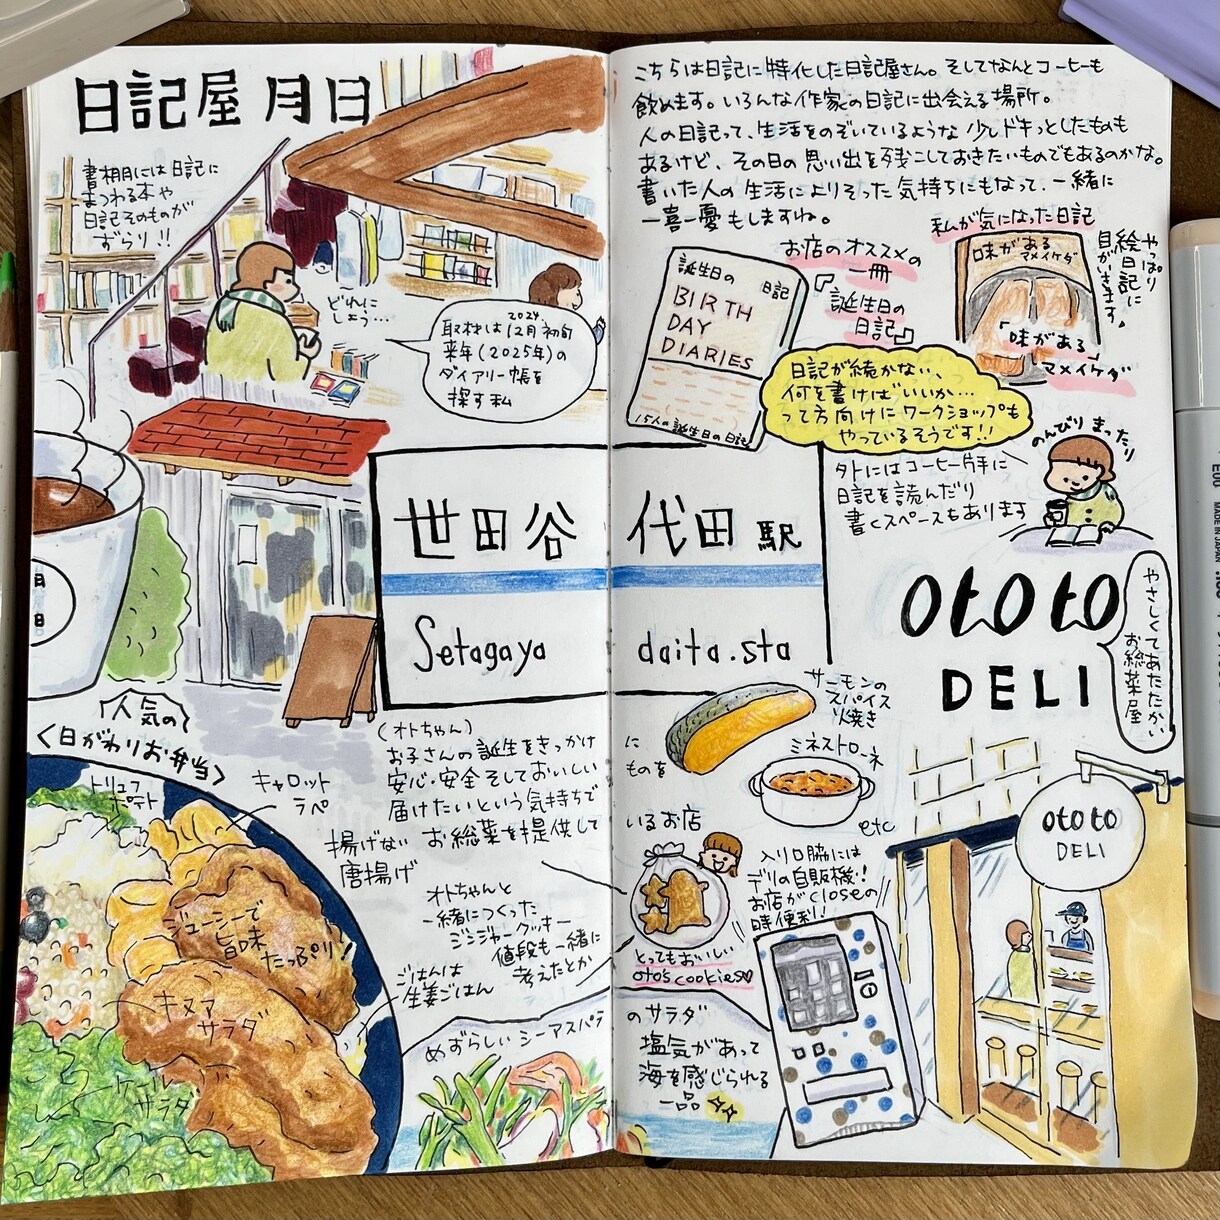 日記屋 月日
書棚には日記に
まつわる本や
日記そのものが
ずらり!!
どれに
しよう…
2024.
取材は12月初旬
来年(2025年)の
ダイアリー帳を
探す私
月
日
世田谷 代田駅
Setagaya daita.sta
人気の
<日がわりお弁当>
トリュフ
ポテト
キャロット
ラペ
揚げない
唐揚げ
ジューシーで
旨味
たっぷり!
キヌア
サラダ
ケール
サラダ
ごはんは
生姜ごはん
(オトちゃん)
お子さんの誕生をきっかけに
安心・安全そしておいしいものを
届けたいという気持ちで
お総菜を提供しているお店
オトちゃんと
一緒につくった
ジンジャークッキー
値段も一緒に
考えたとか
めずらしいシーアスパラのサラダ
塩気があって
海を感じられる
一品
こちらは日記に特化した日記屋さん。そしてなんとコーヒーも
飲めます。いろんな作家の日記に出会える場所。
人の日記って、生活をのぞいているような少しドキッとしたものも
あるけど、その日の思い出を残こしておきたいものでもあるのかな。
書いた人の生活によりそった気持ちにもなって、一緒に
一喜一憂もしますね。
お店のオススメの
一冊
『誕生日の
日記』
誕生日の
日記
BIRTH
DAY
DIARIES
15人の誕生日の日記
私が気になった日記
味がある
マメイケダ
「味がある」
マメイケダ
やっぱり
絵日記に
目がいきます。
日記が続かない、
何を書けばいいか…
って方向けにワークショップも
やっているそうです!!
外にはコーヒー片手に
日記を読んだり
書くスペースもあります
のんびりまったり
ototo
DELI
やさしくてあたたかい
お総菜屋
サーモンの
スパイス
焼き
ミネストローネ
etc
とってもおいしい
oto's cookies
入り口脇には
デリの自販機!
お店がcloseの
時便利!
ototo
DELI
E00
MADE IN JAPAN